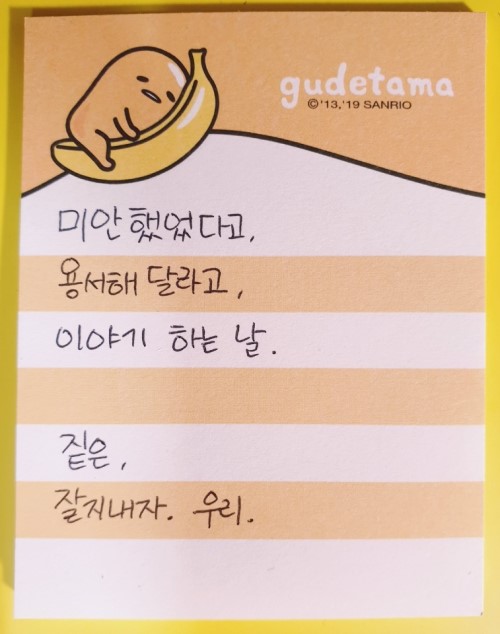 gudetama
©'13,'19 SANRIO
미안했었다고,
용서해 달라고,
이야기 하는 날.
짙은,
잘지내자. 우리.